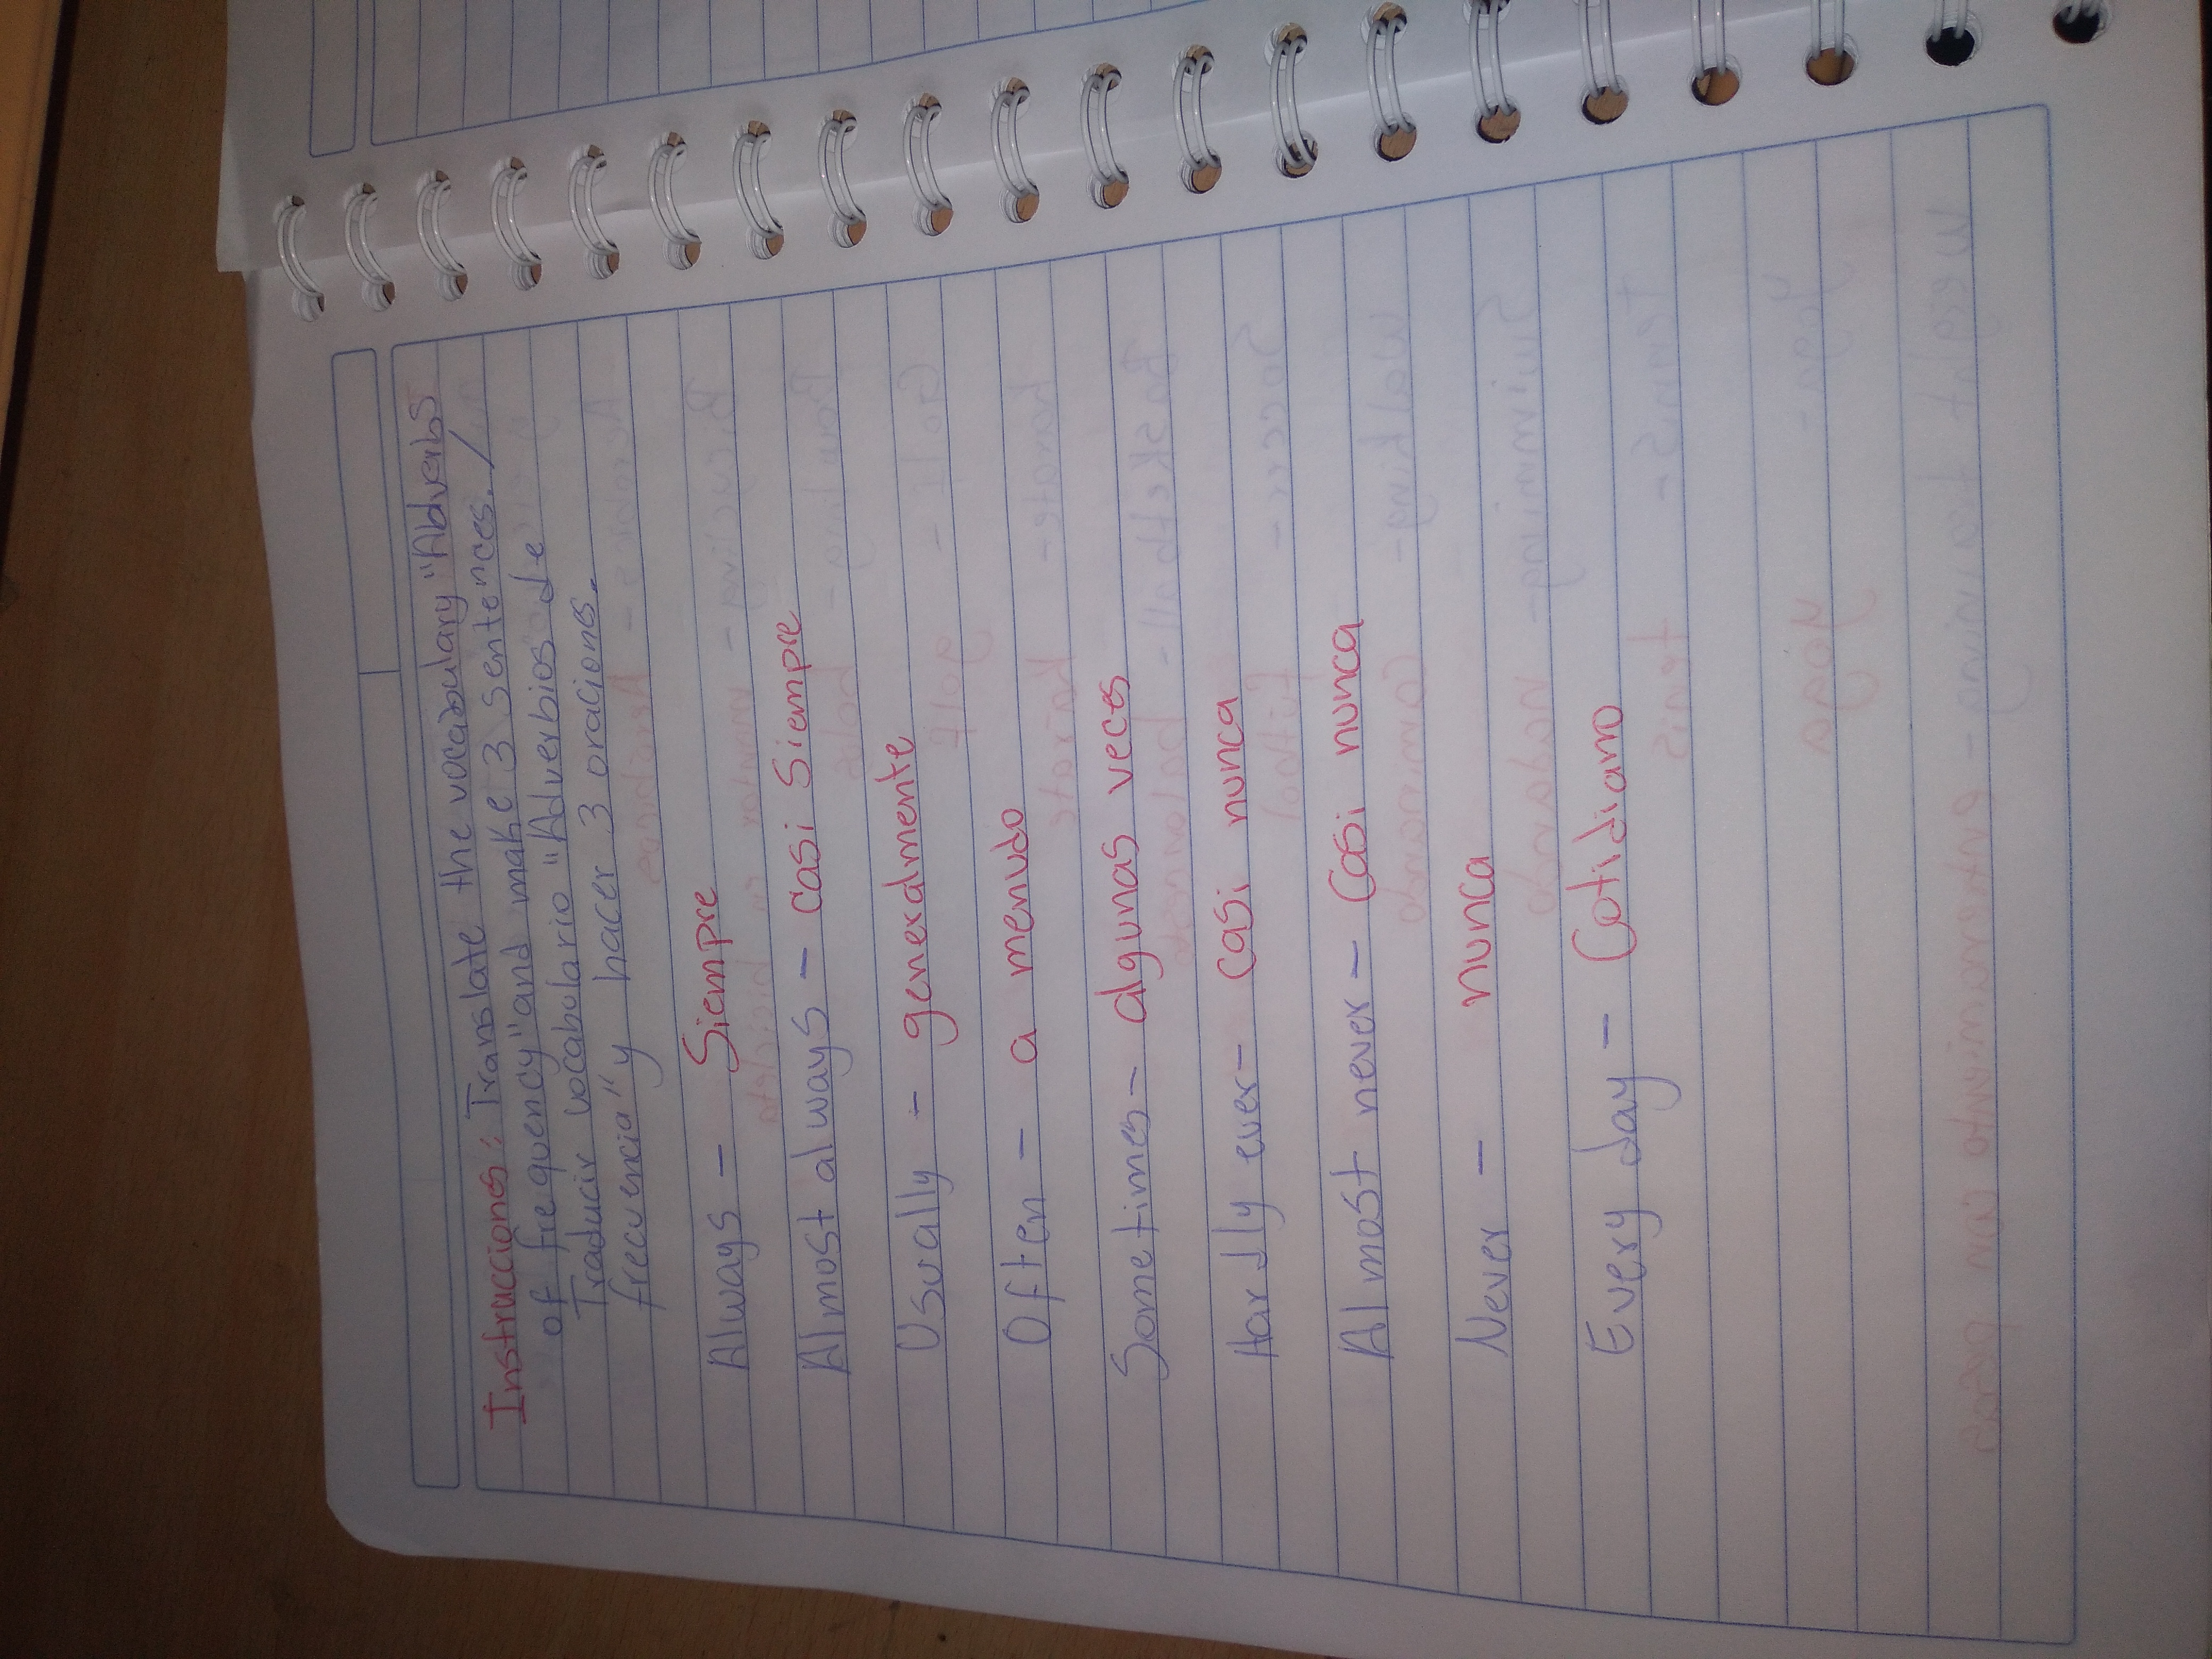 Instrucciones: Translate the vocabulary "Adverbs
of frequency" and make 3 sentences./
Traducir vocabulario "Adverbios de
frecuencia" y hacer 3 oraciones.
Always - Siempre
Almost always - casi Siempre
Usually - generalmente
Often - a menudo
Sometimes - algunas veces
Hardly ever - casi nunca
Almost never - Casi nunca
Never - nunca
Every day - Cotidiano